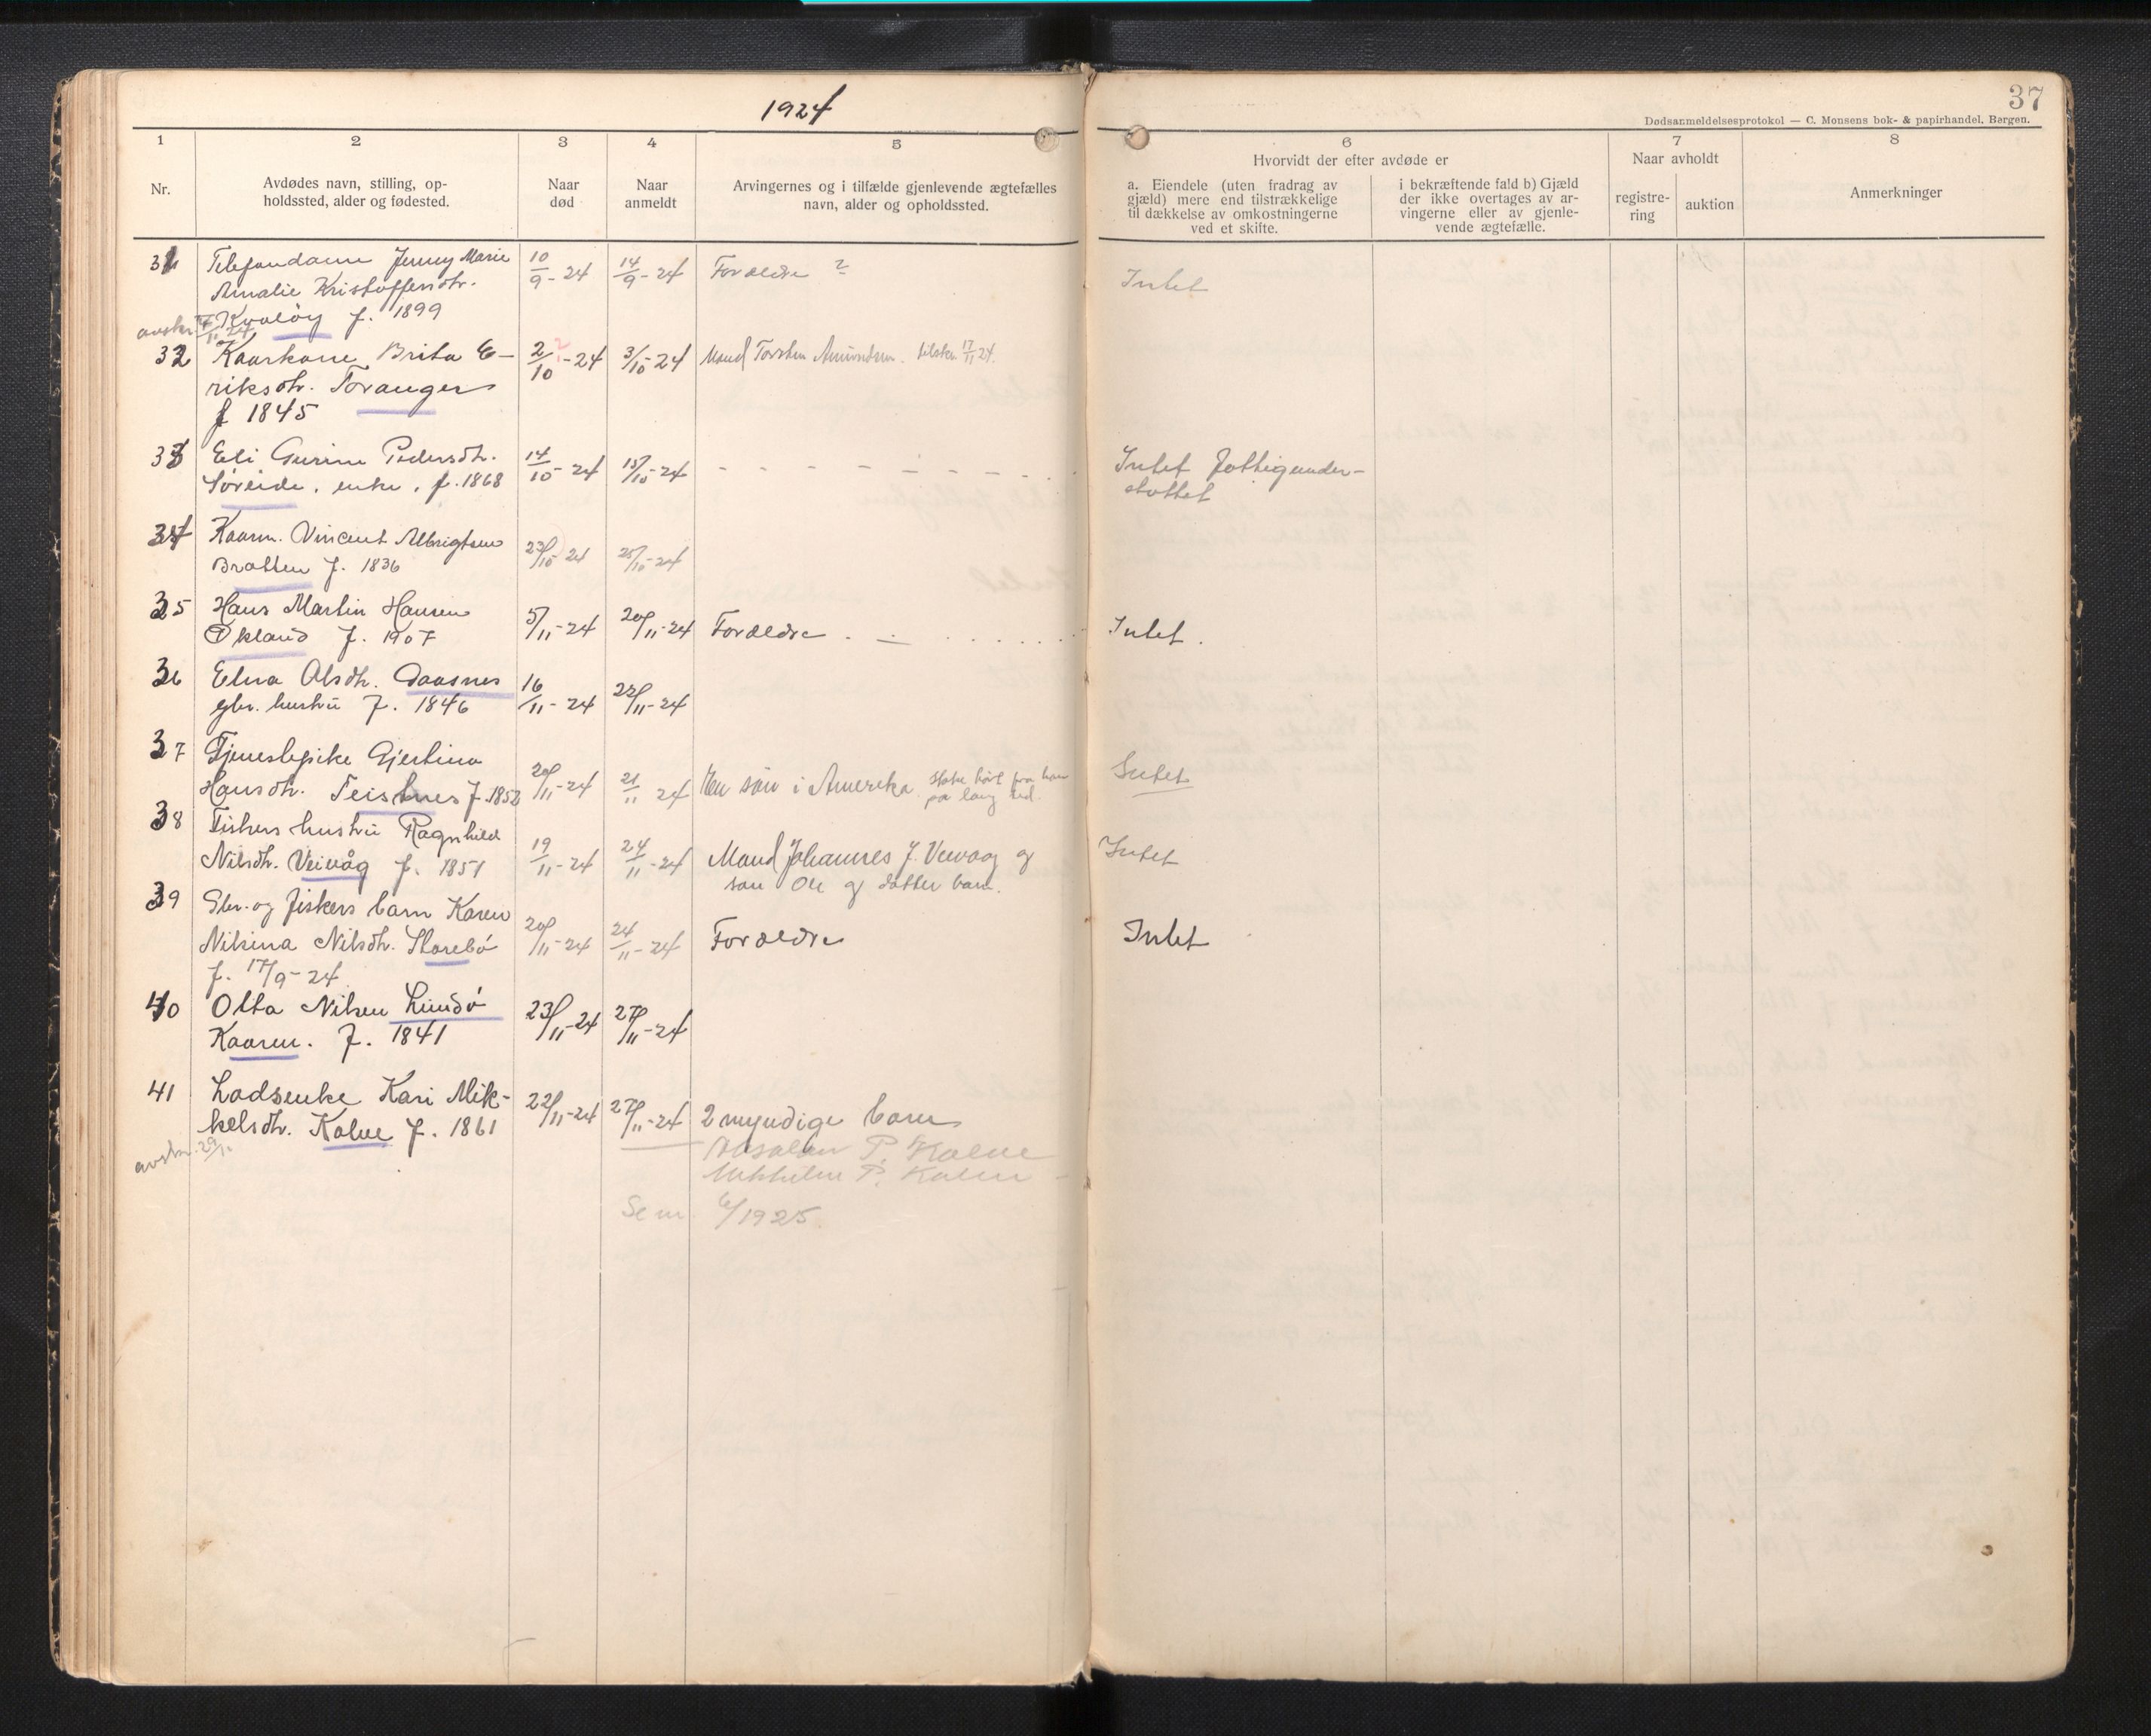 1924
37
Dødsanmeldelsesprotokol — C. Monsens bok- & papirhandel, Bergen.
1 2 3 4 5 6 7 8
Nr.
Avdødes navn, stilling, op-
holdssted, alder og fødested.
Naar
død
Naar
anmeldt
Arvingernes og i tilfælde gjenlevende ægtefælles
navn, alder og opholdssted.
Hvorvidt der efter avdøde er
a. Eiendele (uten fradrag av
gjæld) mere end tilstrækkelige
til dækkelse av omkostningerne
ved et skifte.
i bekræftende fald b) Gjæld
der ikke overtages av ar-
vingerne eller av gjenle-
vende ægtefælle.
Naar avholdt
registre-
ring
auktion
Anmerkninger
31 Telefondame Jenny Marie 10/9-24 14/9-24 Forældre 2 Intet
Amalie Kristoffersdtr.
Kvaløy f. 1899
32 Kaarkone Brita E- 2/10-24 3/10-24 Mand Torsten Amundsen. 17/11 24.
riksdtr. Toranger
f 1845
33 Eli Gurine Pedersdtr. 14/10-24 15/10-24 Intet fattigunder-
støttet
Søreide, enke, f. 1868
34 Kaarm. Vincent Albrigtsen 23/10-24 25/10-24
Bratten f. 1836
35 Hans Martin Hansen 5/11-24 20/11-24 Forældre Intet.
Økland f. 1907
36 Elna Olsdtr. Daasnes 16/11-24 22/11-24
gbr. hustru f. 1846
37 Tjenestepike Gjertina 20/11-24 21/11 24 En søn i Amerika Intet
Hansdtr. Teistnes f. 1852
38 Fiskers hustru Ragnhild 19/11-24 24/11-24 Mand Johannes J. Veivaag og Intet
Nilsdtr. Veivåg f. 1851 søn Ole og datter barn.
39 Gbr. og fiskers barn Karen 20/11-24 24/11-24 Forældre Intet
Nilsina Nilsdtr. Storebø
f. 17/9-24
40 Olta Nilsen Lindø 23/11-24 27/11-24
Kaarm. f. 1841
41 Lodsenke Kari Mik- 22/11-24 27/11-24 2 myndige barn
kelsdtr. Kalve f. 1861
avskr. 29/11
Absalon P. Kalve
P. Kalve
6/1925